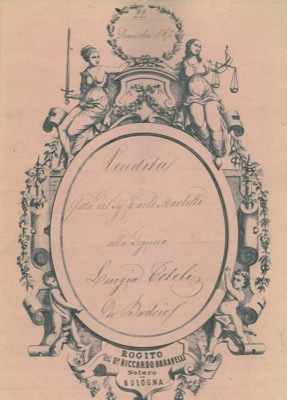 22
Dicembre
Vendita
fatta dal Sig Carlo Martelli
alla Signora
Luigia
Di Budrio
ROGITO
del Dr RICCARDO BARAVELLI
Notaro
BOLOGNA